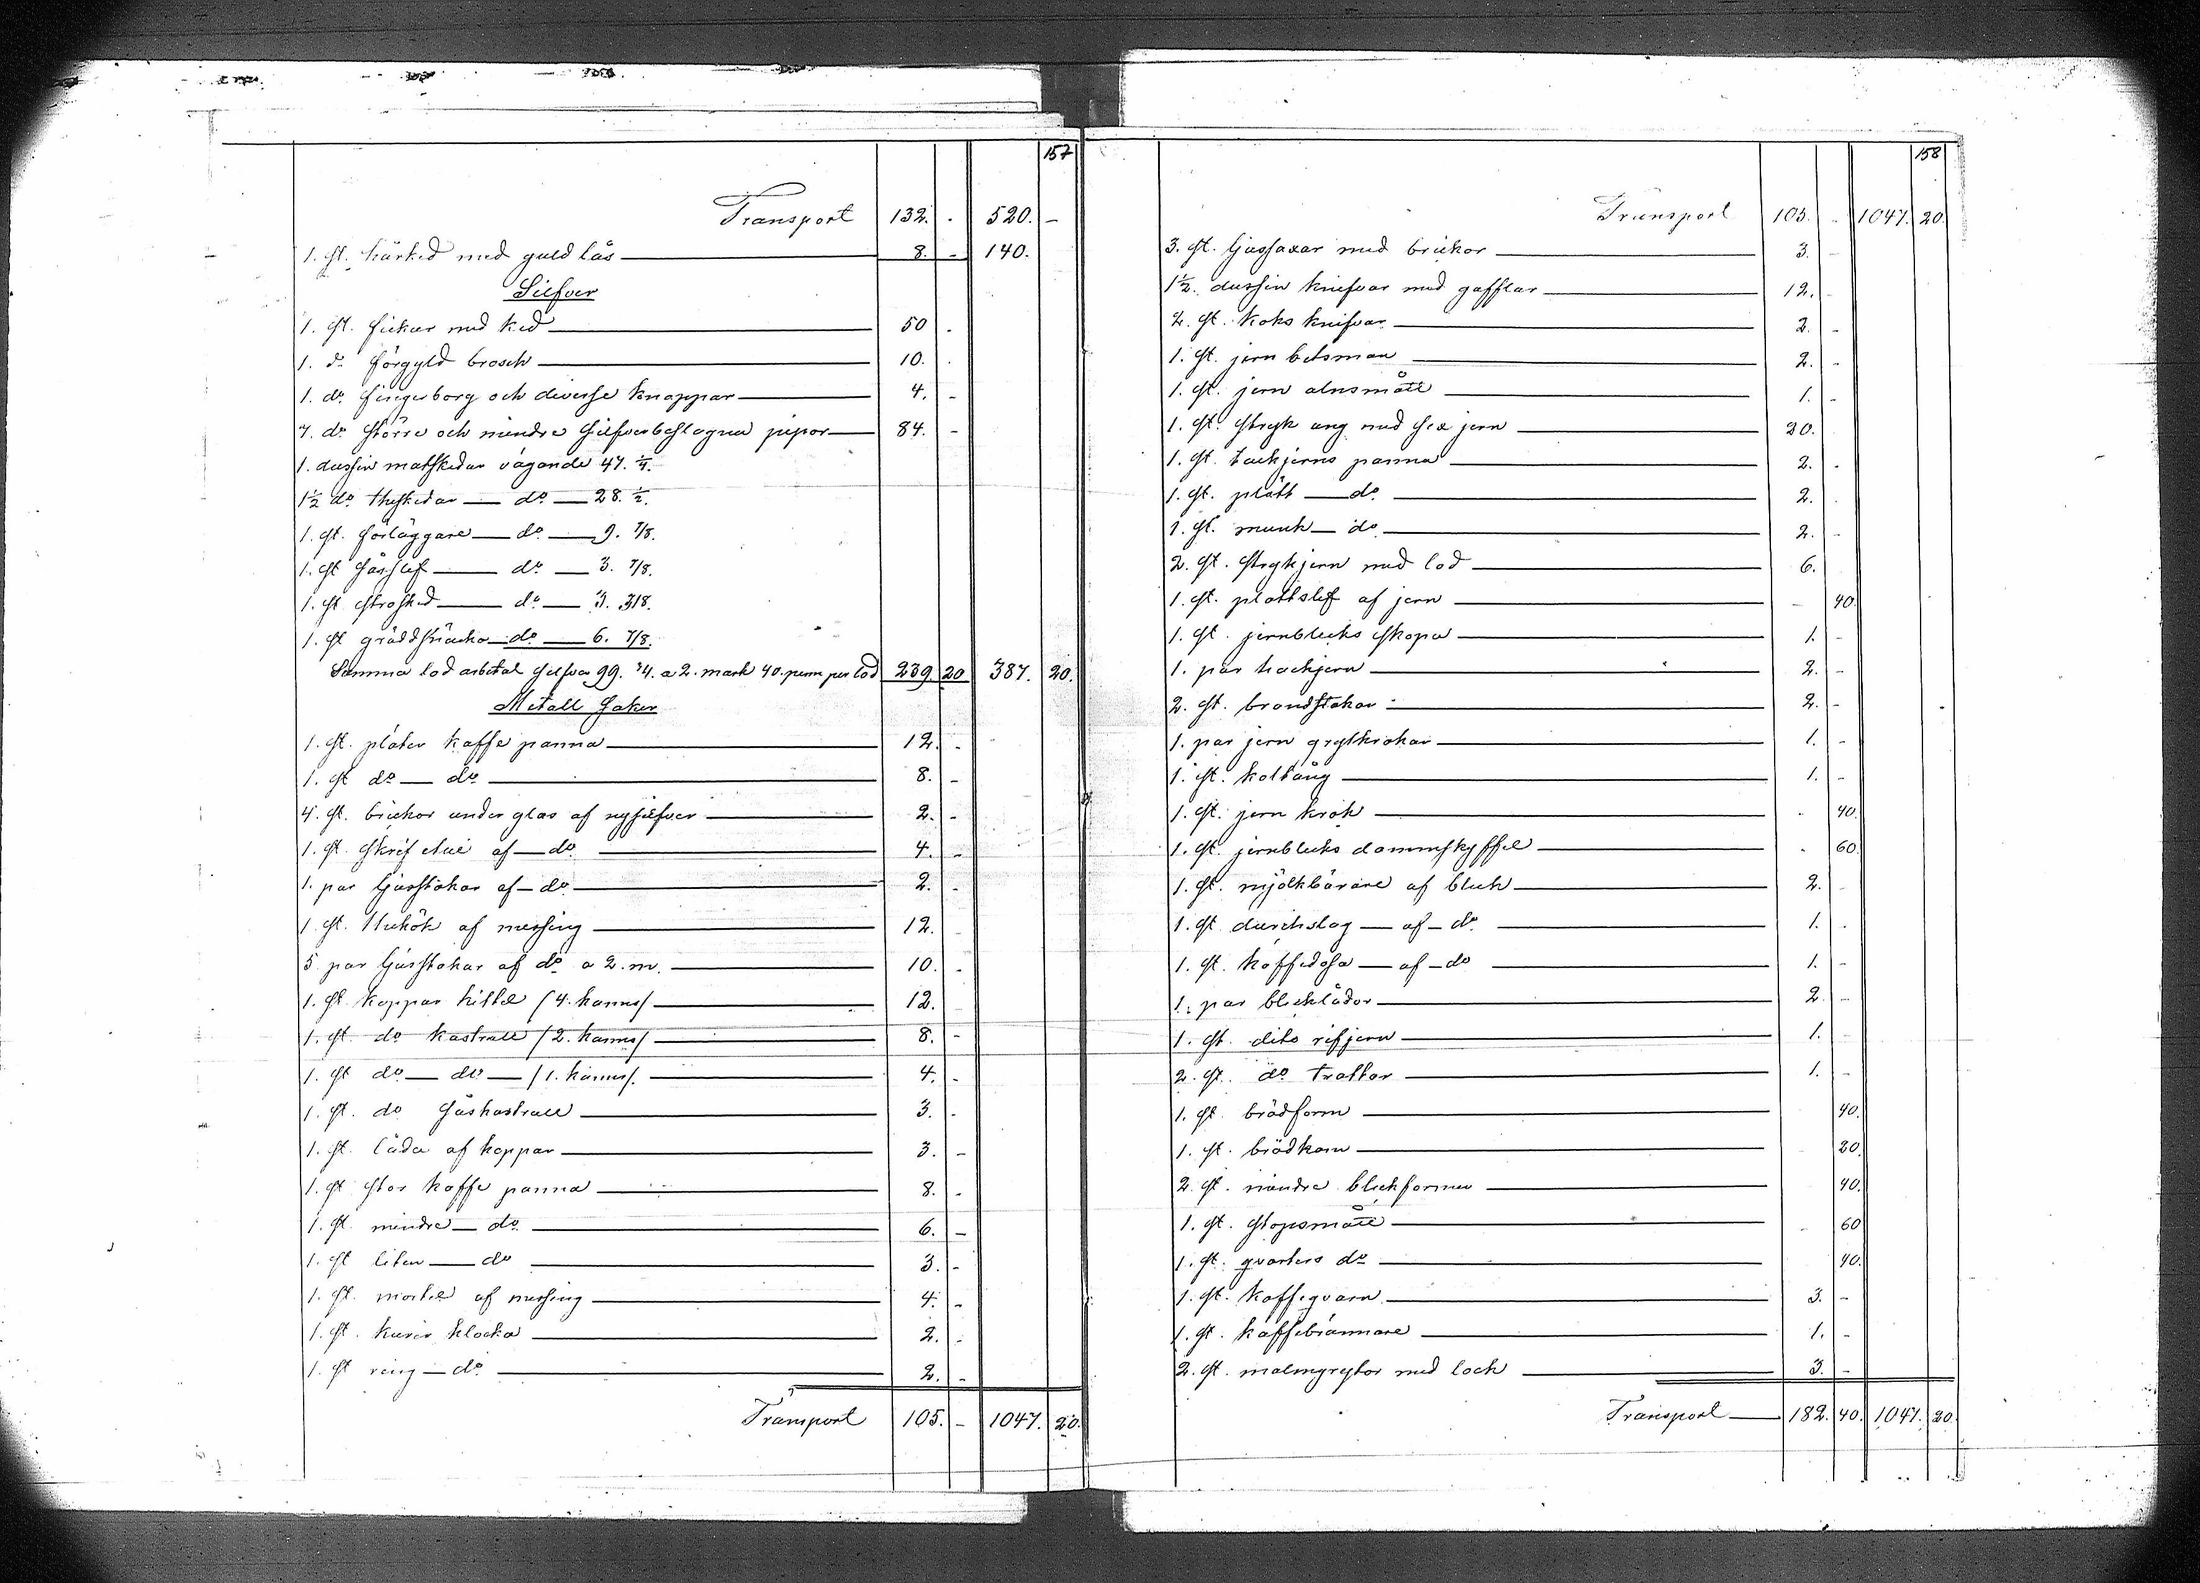 157
Transport 132. - 520. -
1. st. hårked med guld lås 8. - 140.
Silfver
1. st. fickur med ked 50 -
1. do förgyld brosch 10. -
1. do fingerborg och diverse knappar 4. -
7. do större och mindre silfverbeslagna pipor 84. -
1. dussin matskedar vägande 47. 1/4.
1 1/2 do theskedar do 28. 1/2.
1. st. förläggare do 9. 7/8.
1. st såsslef do 3. 7/8.
1. st strösked do 3. 3/8.
1. st gräddsnäcka do 6. 7/8.
Summa lod arbetat silfver 99. 3/4. a 2. mark 40. penni per lod 239 20 387. 20.
Metall saker
1. st. pläter kaffe panna 12. -
1. st do do 8. -
4. st. brickor under glas af nysilfver 2. -
1. st. skrif etui af do 4. -
1. par ljusstakar af do 2. -
1. st. thekök af messing 12. -
5 par ljusstakar af do a 2. m. 10. -
1. st koppar kittel /4. kanns/ 12. -
1. st. do kastrull /2. kanns/ 8. -
1. st do do /1. kanns/. 4. -
1. st. do såskastrull 3. -
1. st. låda af koppar 3. -
1. st stor kaffe panna 8. -
1. st. mindre do 6. -
1. st liten do 3. -
1. st. mortel af messing 4. -
1. st. klocka 2. -
1. st ring do 2. -
Transport 105. - 1047. 20.
158
Transport 105. - 1047. 20.
3. st. ljussaxar med brickor 3. -
1 1/2. dussin knifvar med gafflar 12. -
2. st. köks knifvar 2. -
1. st. jern betsman 2. -
1. st. jern alnsmått 1. -
1. st. stryk ugn med sex jern 20.
1. st. tackjerns panna 2. -
1. st. plätt do 2. -
1. st. munk do 2. -
2. st. strykjern med lod 6.
1. st. plättslef af jern - 40.
1. st. jernblecks skopa 1. -
1. par hackjern 2. -
2. st. brandstakar 2. -
1. par jern grytkrokar 1. -
1. st. koltång 1. -
1. st. jern krok - 40.
1. st. jernblecks dammskyffel - 60.
1. st. mjölkbärare af bleck 2. -
1. st durchslag af do 1. -
1. st. kaffedosa af do 1. -
1. par blecklådor 2 -
1. st. dito rifjern 1. -
2. st. do trattar 1. -
1. st. brödform 40.
1. st. brödkorn 20.
2. st. mindre bleckformar 40.
1. st. stopsmått - 60
1. st. qvarters do 40.
1. st. kaffeqvarn 3. -
1. st. kaffebrännare 1. -
2. st. malmgrytor med lock 3. -
Transport 182. 40. 1047. 20.